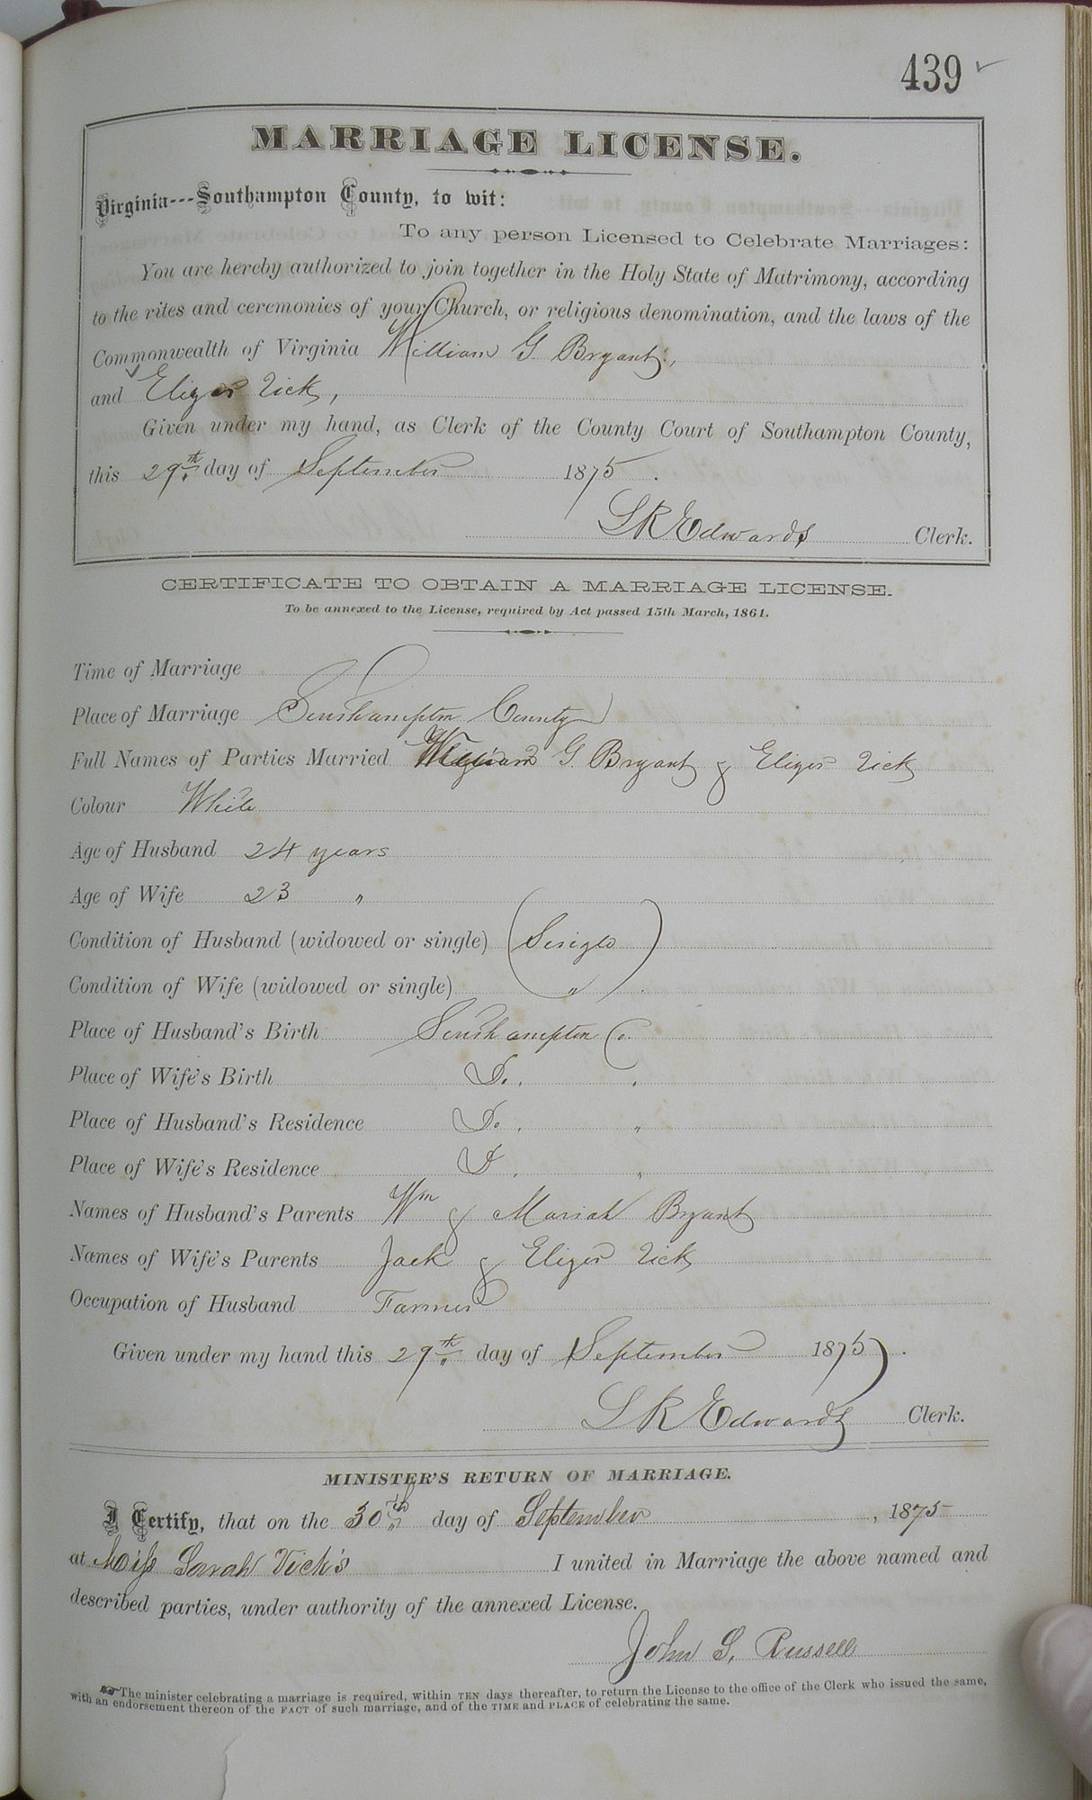 439
MARRIAGE LICENSE.
Virginia---Southampton County, to wit:
To any person Licensed to Celebrate Marriages:
You are hereby authorized to join together in the Holy State of Matrimony, according
to the rites and ceremonies of your Church, or religious denomination, and the laws of the
Commonwealth of Virginia William G. Bryant,
and Eliza Vick,
Given under my hand, as Clerk of the County Court of Southampton County,
this 29th day of September 1875.
L R Edwards Clerk.
CERTIFICATE TO OBTAIN A MARRIAGE LICENSE.
To be annexed to the License, required by Act passed 15th March, 1861.
Time of Marriage
Place of Marriage Southampton County
Full Names of Parties Married William G. Bryant & Eliza Vick
Colour White
Age of Husband 24 years
Age of Wife 23 "
Condition of Husband (widowed or single) (Single)
Condition of Wife (widowed or single) "
Place of Husband's Birth Southampton Co.
Place of Wife's Birth Do. "
Place of Husband's Residence Do. "
Place of Wife's Residence D "
Names of Husband's Parents Wm & Mariah Bryant
Names of Wife's Parents Jack & Eliza Vick
Occupation of Husband Farmer
Given under my hand this 29th day of September 1875.
L R Edwards Clerk.
MINISTER'S RETURN OF MARRIAGE.
I Certify, that on the 30th day of September, 1875
at Miss Sarah Vick's I united in Marriage the above named and
described parties, under authority of the annexed License.
John S. Russell
The minister celebrating a marriage is required, within TEN days thereafter, to return the License to the office of the Clerk who issued the same,
with an endorsement thereon of the FACT of such marriage, and of the TIME and PLACE of celebrating the same.